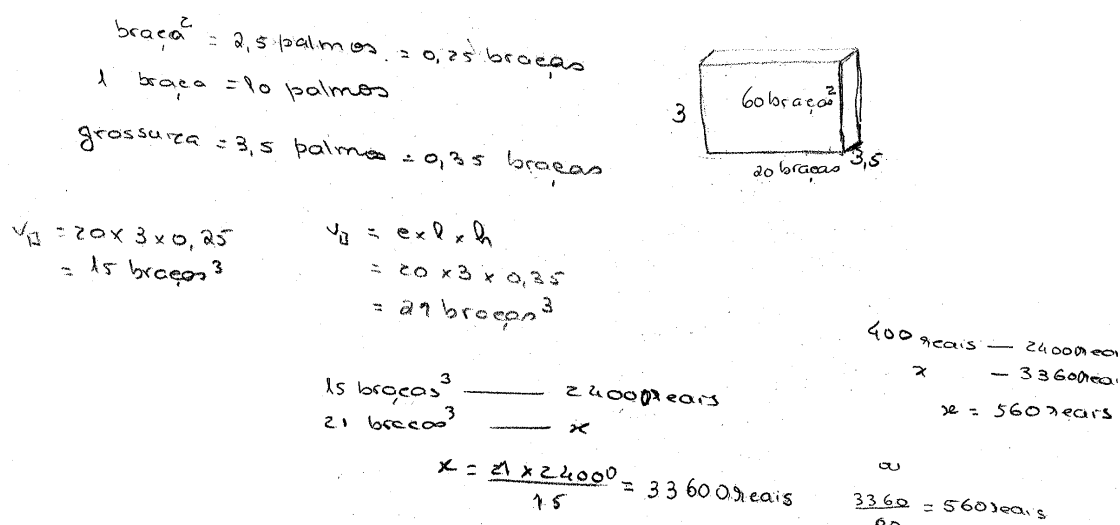 braça² = 2,5 palmos. = 0,25 braças
1 braça = 10 palmos
grossura = 3,5 palmos = 0,35 braças
3
60 braças²
20 braças
3,5
V = 20 x 3 x 0,25
= 15 braças³
V = e x l x h
= 20 x 3 x 0,35
= 21 braças³
15 braças³ —— 24000 reais
21 braças³ —— x
x = 21 x 24000 / 15 = 33600 reais
400 reais — 24000 rea
x — 33600 rea
x = 560 reais
ou
3360 / 60 = 560 reais